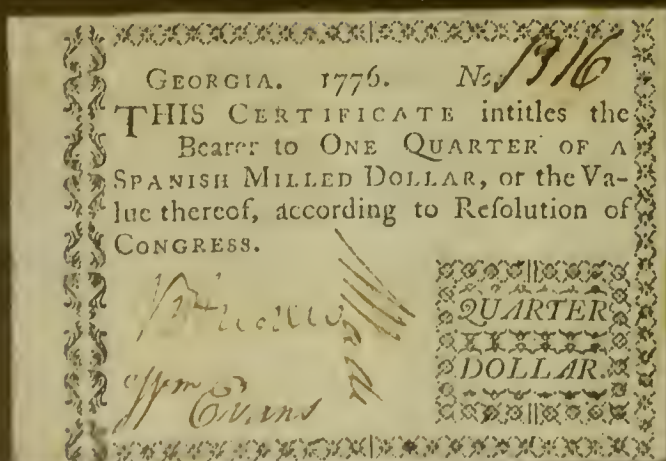 GEORGIA. 1776. No. 1316
THIS CERTIFICATE intitles the
Bearer to ONE QUARTER OF A
SPANISH MILLED DOLLAR, or the Va-
lue thereof, according to Reſolution of
CONGRESS.
QUARTER
DOLLAR.
Evans